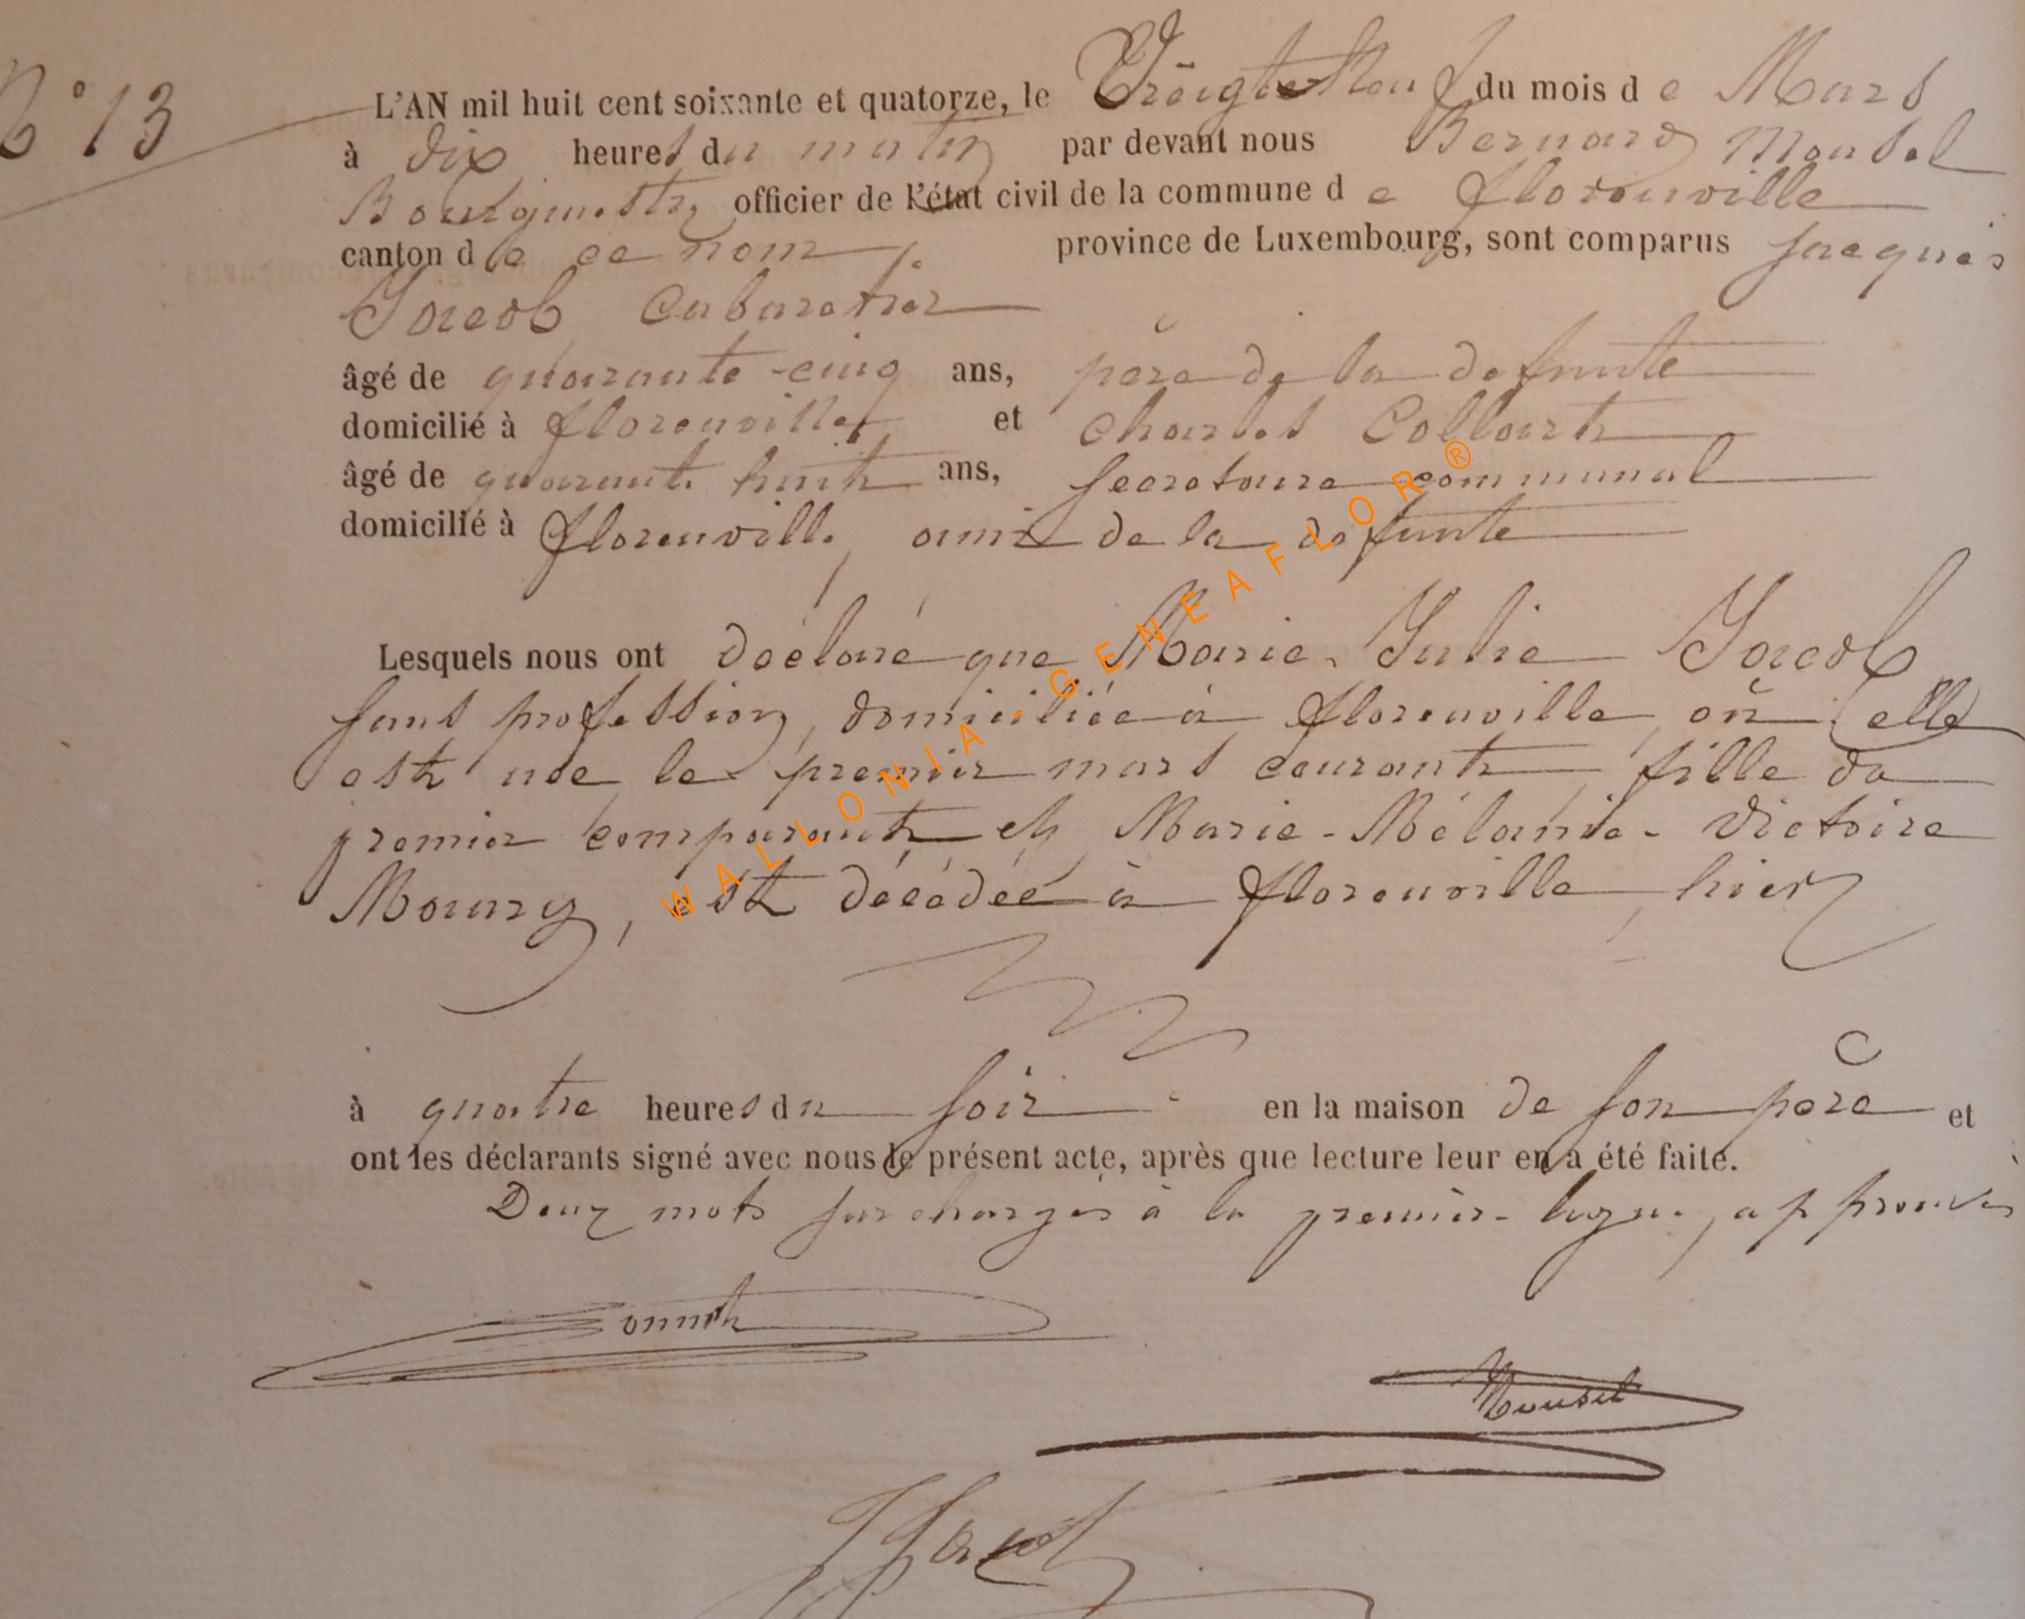 N° 13
L'AN mil huit cent soixante et quatorze, le Vingt Neuf du mois de Mars
à dix heures du matin par devant nous Bernard Mousel
Bourgmestre officier de l'état civil de la commune de florenville
canton de ce nom province de Luxembourg, sont comparus Jacques
Jacob Cabaretier
âgé de quarante-cinq ans, père de la defunte
domicilié à florenville et Charles Collart
âgé de quarante huit ans, Secretaire communal
domicilié à florenville, ami de la defunte
Lesquels nous ont déclaré que Marie-Julie Jacob
sans profession, domiciliée à florenville, où elle
est née le premier mars courant, fille du
premier comparant et Marie-Mélanie-Victoire
Moury, est décédée à florenville, hier
à quatre heures du soir en la maison de son père et
ont les déclarants signé avec nous le présent acte, après que lecture leur en a été faite.
Deux mots surchargés à la première ligne, approuvés
Mousel
WALLONIA - GENEAFLOR®